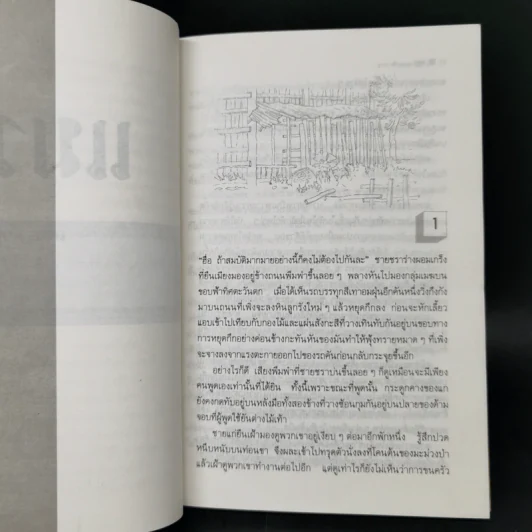 แมว
1
"ฮือ ถ้าสมบัติมากมายอย่างนี้ก็คงไม่ต้องไปกันละ" ชายชราร่างผอมเกร็ง
ที่ยืนเมียงมองอยู่ข้างถนนพึมพำขึ้นลอย ๆ พลางหันไปมองกลุ่มเมฆบน
ขอบฟ้าทิศตะวันตก เมื่อได้เห็นรถบรรทุกสีเทาอมฝุ่นอีกคันหนึ่งวิ่งกึงกัง
มาบนถนนที่เพิ่งจะลงหินลูกรังใหม่ ๆ แล้วหยุดกึกลง ก่อนจะหักเลี้ยว
แอบเข้าไปเทียบกับกองไม้และแผ่นสังกะสีที่วางเทินทับกันอยู่บนขอบทาง
การหยุดกึกอย่างค่อนข้างกะทันหันของมันทำให้ฟุ้งทรายหมาด ๆ ที่เพิ่ง
จะจางลงจากแรงตะกายออกไปของรถคันก่อนกลับกระจุยขึ้นอีก
อย่างไรก็ดี เสียงพึมพำที่ชายชราบ่นขึ้นลอย ๆ ก็ดูเหมือนจะมีเพียง
คนพูดเองเท่านั้นที่ได้ยิน ทั้งนี้เพราะขณะที่พูดนั้น กระดูกคางของแก
ยังคงกดทับอยู่บนหลังมือทั้งสองข้างที่วางซ้อนกุมกันอยู่บนปลายของด้าม
จอบที่ผู้พูดใช้ยันต่างไม้เท้า
ชายแก่ยืนเฝ้ามองดูพวกเขาอยู่เงียบ ๆ ต่อมาอีกพักหนึ่ง รู้สึกปวด
หนึบหนับบนท่อนขา จึงผละเข้าไปทรุดตัวนั่งลงที่โคนต้นของมะม่วงป่า
แล้วเฝ้าดูพวกเขาทำงานต่อไปอีก แต่ดูเท่าไรก็ยังไม่เห็นว่าการขนครัว